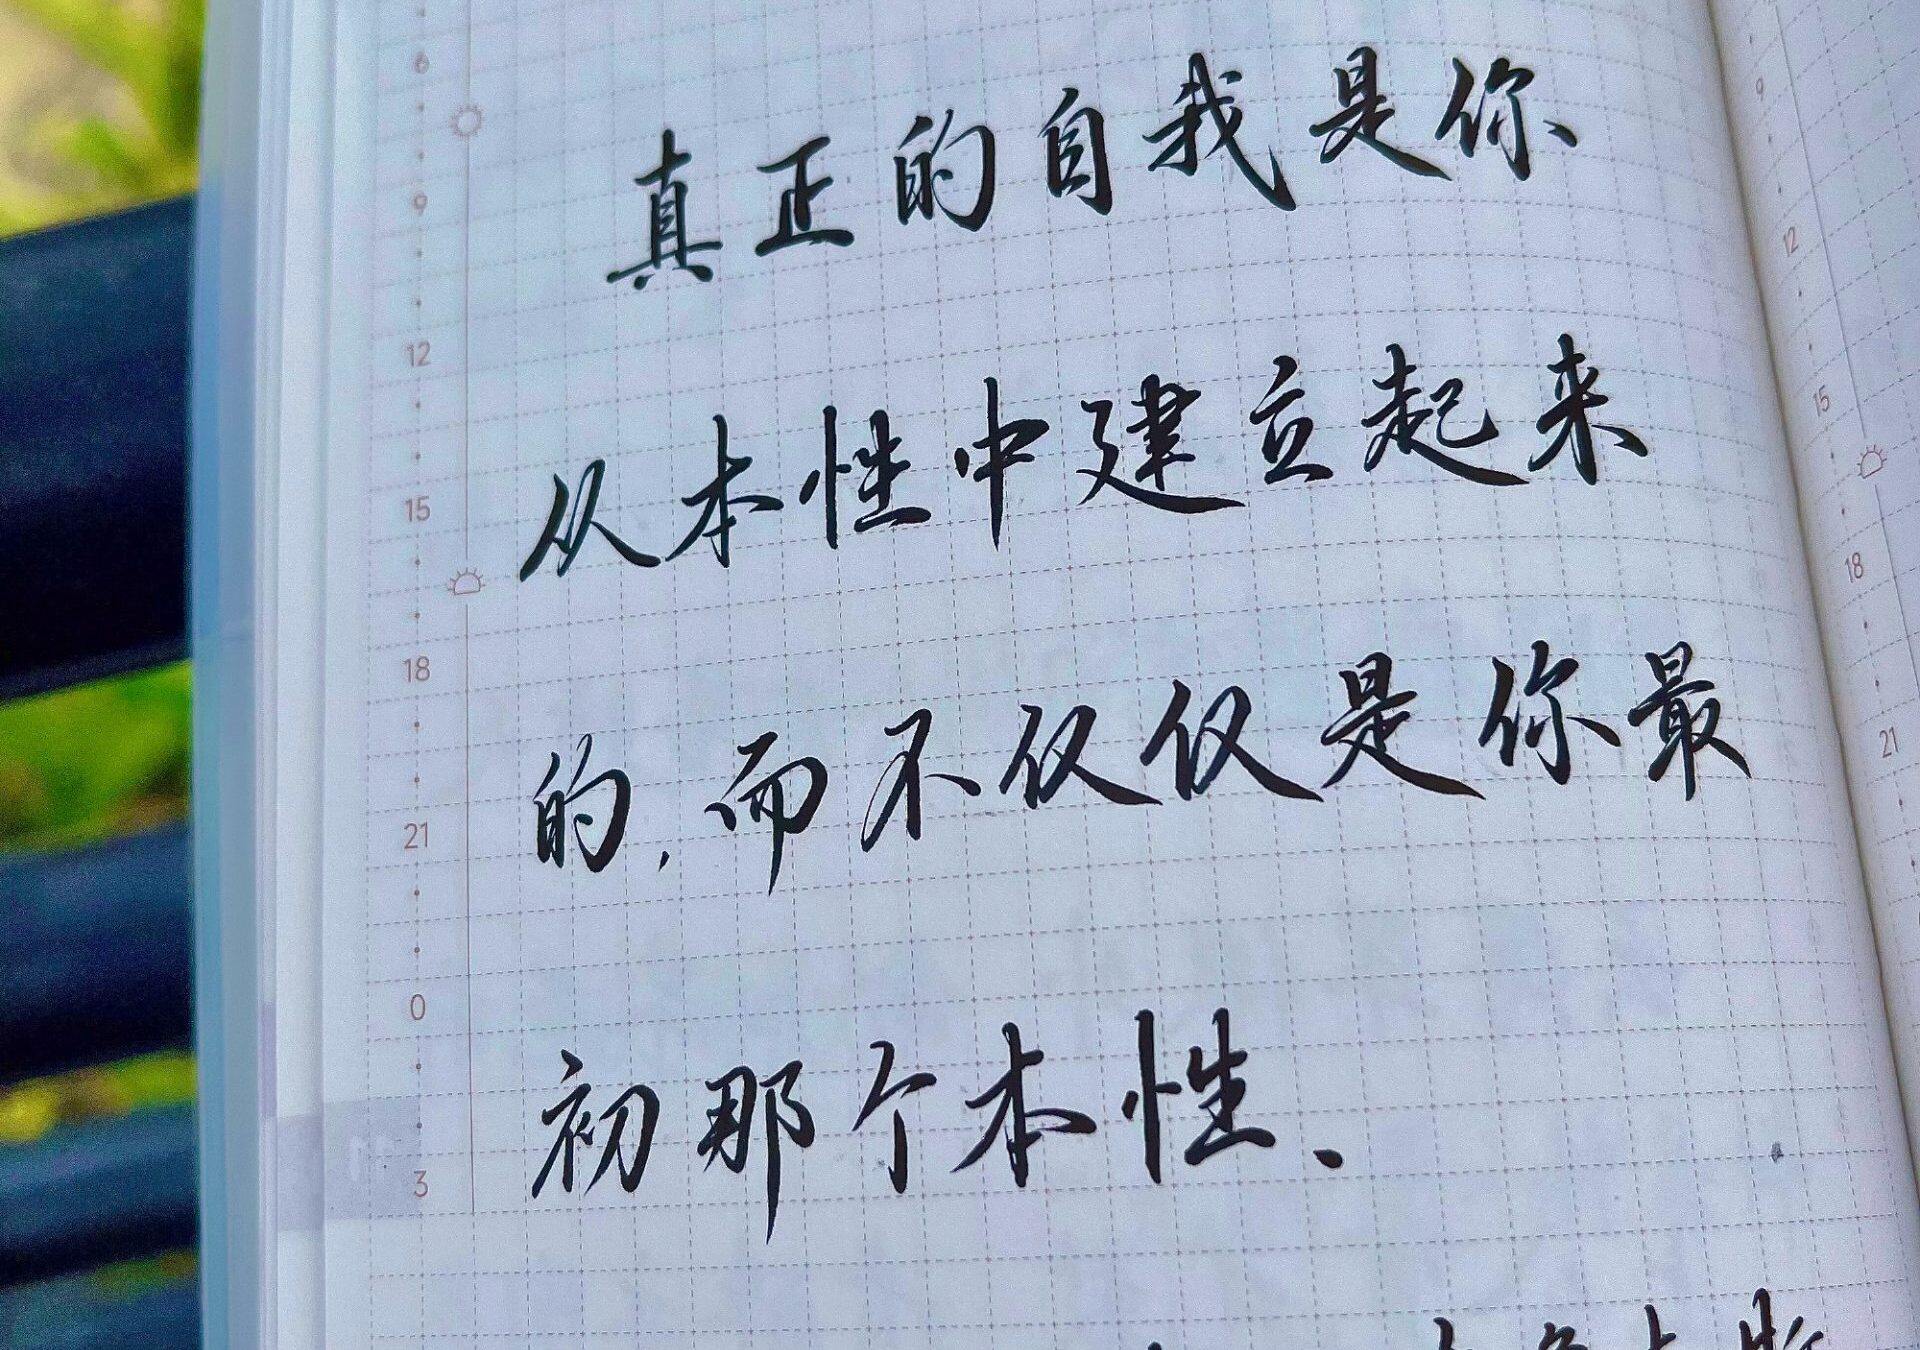 真正的自我是你
从本性中建立起来
的,而不仅仅是你最
初那个本性、
6
9
12
15
18
21
0
3
11
9
12
15
18
21